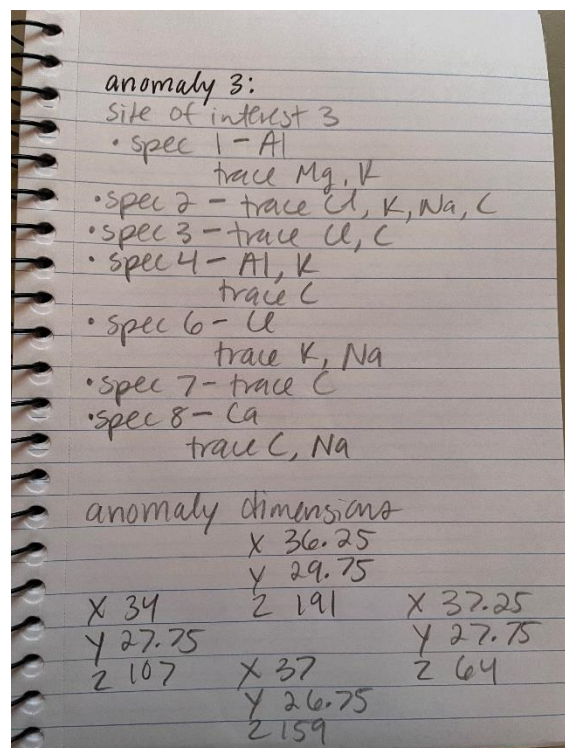 anomaly 3:
site of interest 3
• spec 1 - Al
trace Mg, K
• spec 2 - trace Cl, K, Na, C
• spec 3 - trace Cl, C
• spec 4 - Al, K
trace C
• spec 6 - Cl
trace K, Na
• spec 7 - trace C
• spec 8 - Ca
trace C, Na
anomaly dimensions
X 36.25
Y 29.75
Z 191
X 34
Y 27.75
Z 107
X 37.25
Y 27.75
Z 64
X 37
Y 26.75
Z 159